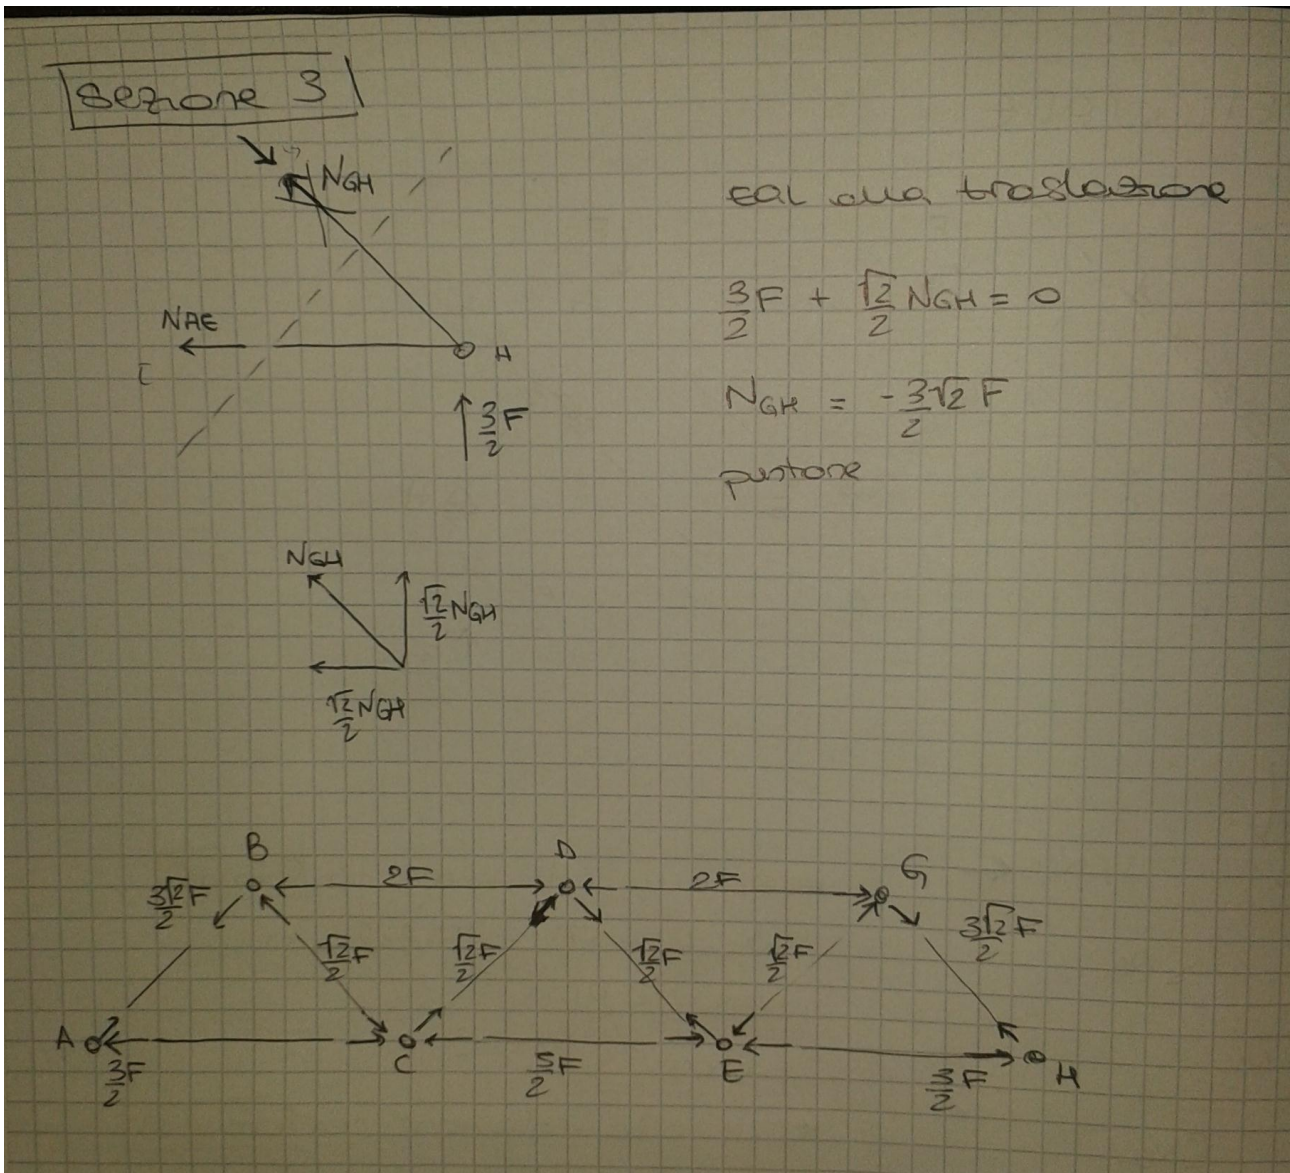 Sezione 3
NGH
Eql alla traslazione
3/2 F + √2/2 NGH = 0
NAE
H
3/2 F
NGH = -3√2/2 F
puntone
NGH
√2/2 NGH
√2/2 NGH
B
D
G
3√2/2 F
2F
2F
3√2/2 F
√2/2 F
√2/2 F
√2/2 F
√2/2 F
A
C
E
H
3/2 F
5/2 F
3/2 F